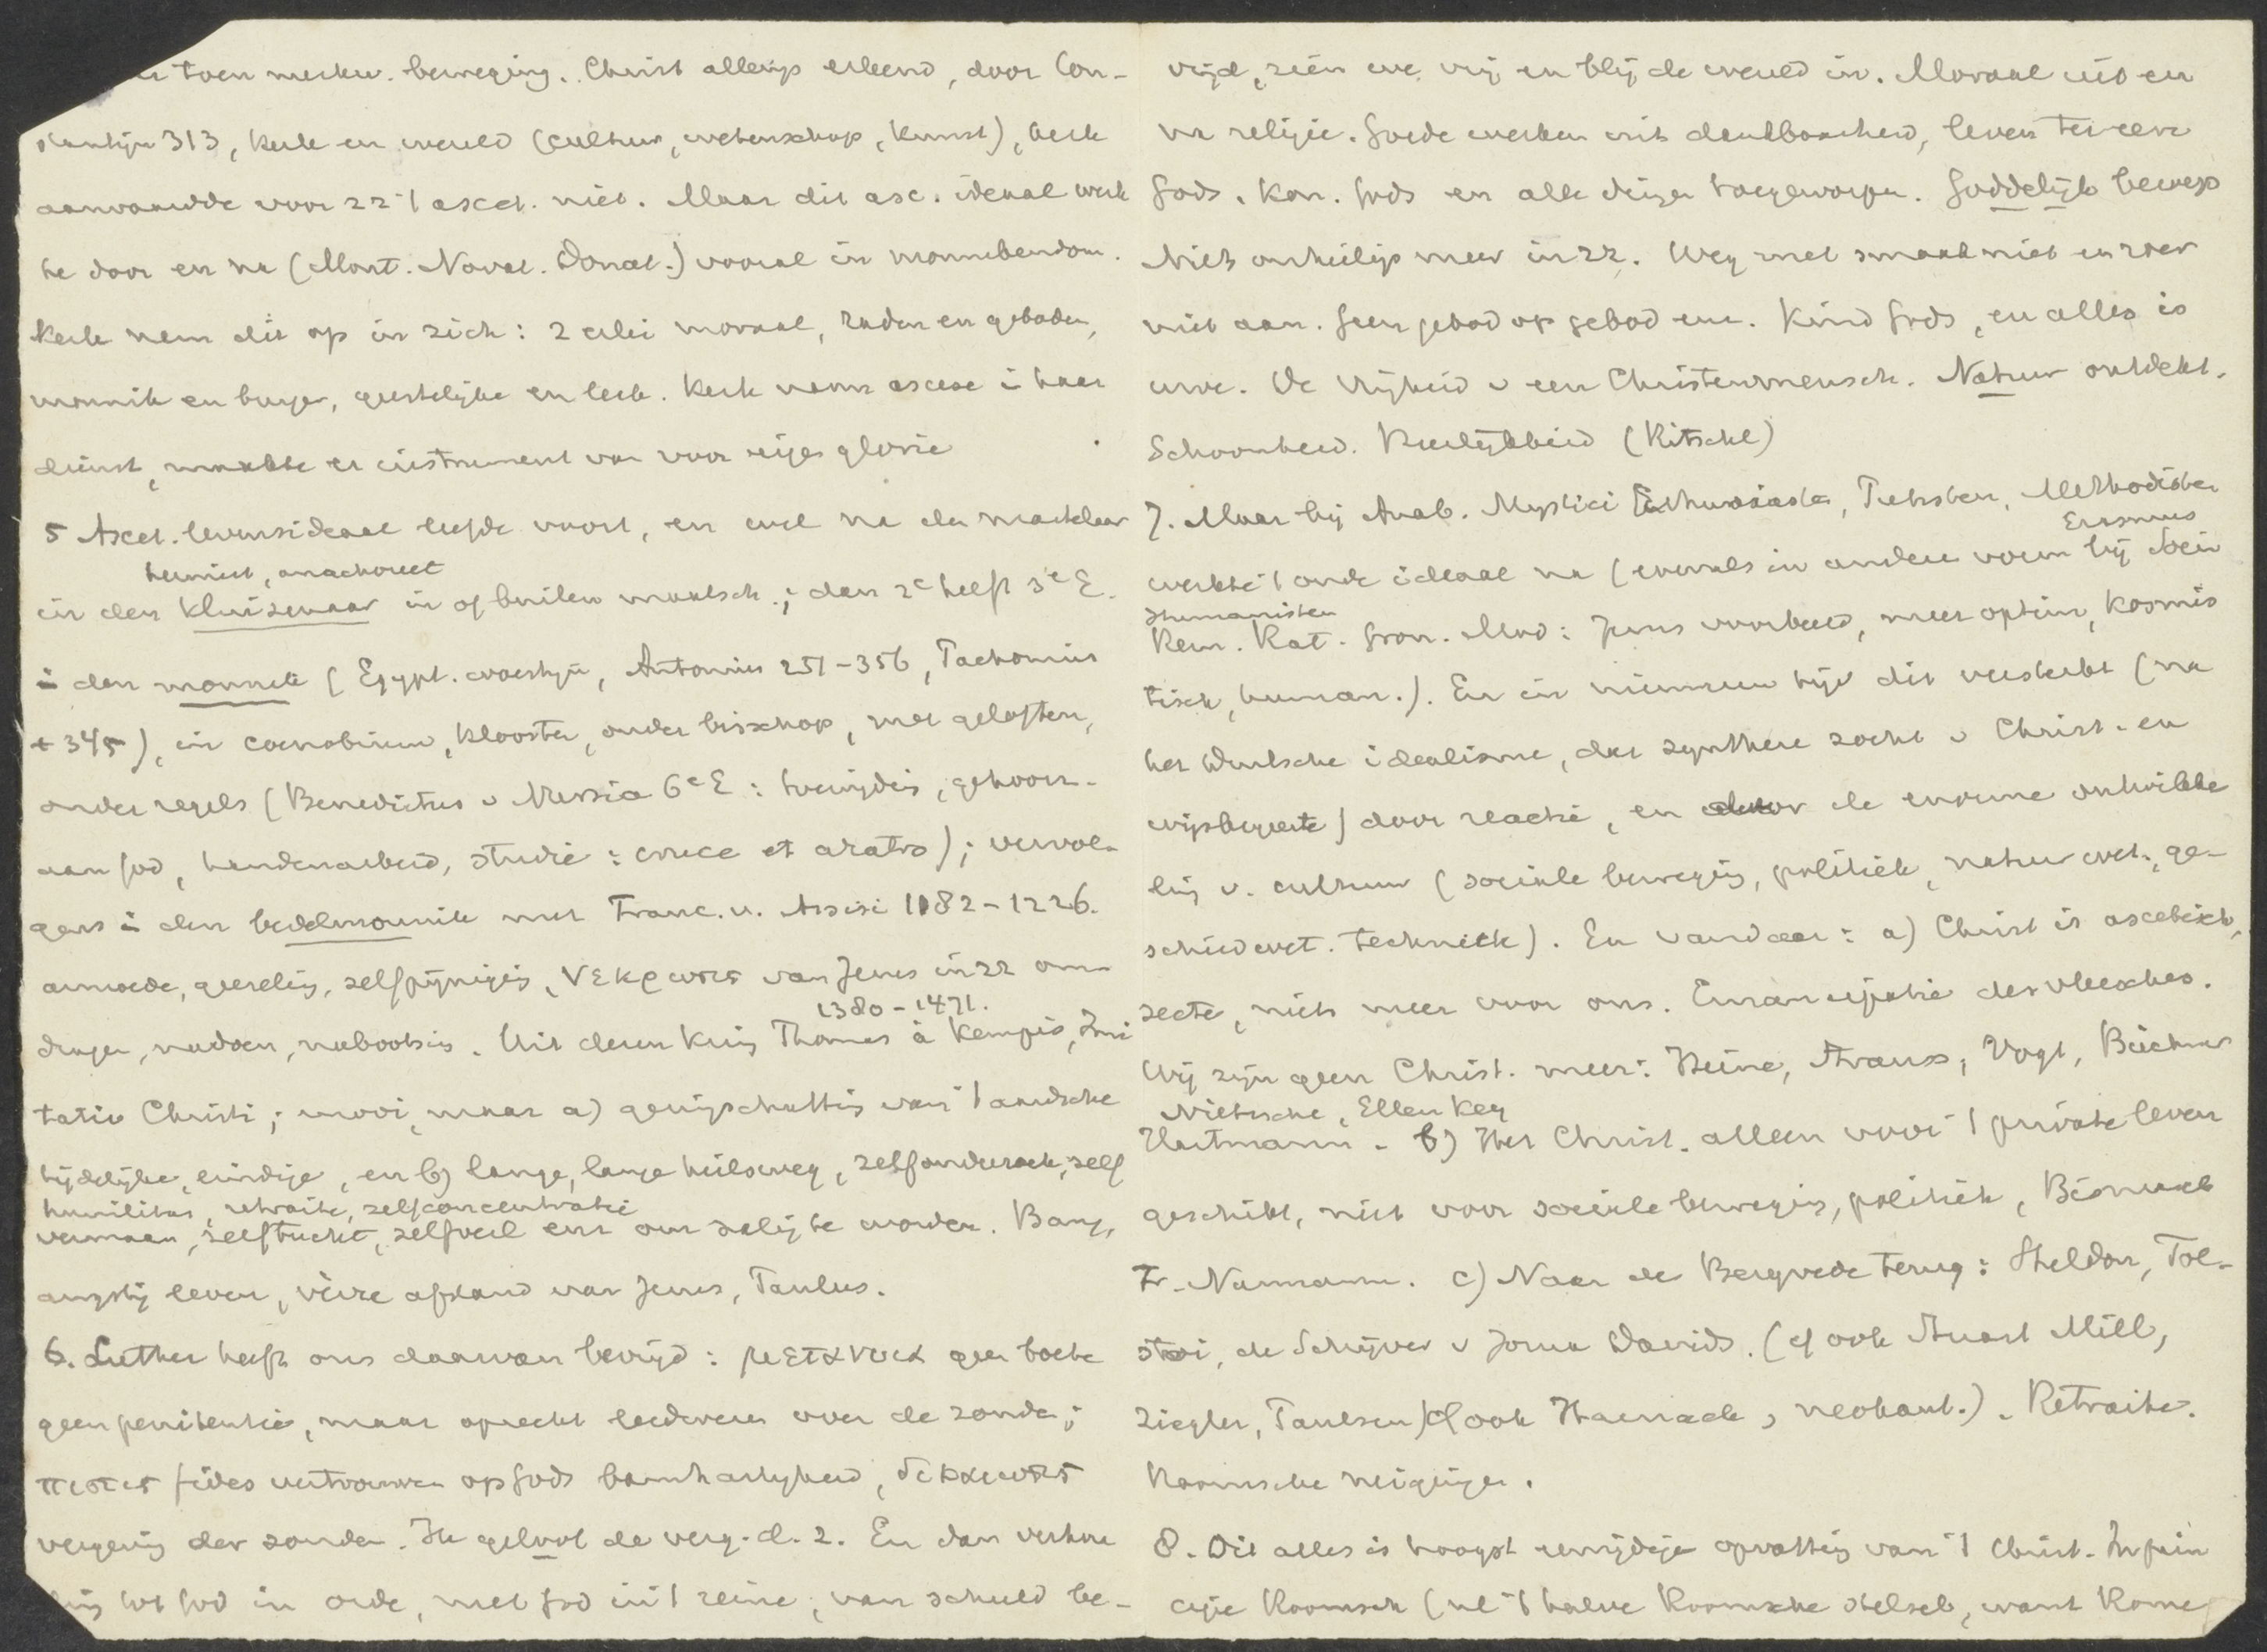 toen merkw. beweging. Christ allengs erkend, door Con-
stantijn 313, Kerk en wereld (cultuur, wetenschap, kunst), kerk
aanvaardde voor zz 't ascet. niet. Maar dit asc. ideaal werk
te door en na (Mont. Novat. Donat.) vooral in monnikendom.
Kerk nam dit op in zich: 2 erlei moraal, raden en geboden,
monnik en burger, geestelijke en leek. Kerk nam ascese i haar
dienst, maakte er instrument van voor eigen glorie
5 Ascet. levensideaal leefde voort, en wel na den martelaar
heremiet, anachoreet
in den kluizenaar in of buiten maatsch.; dan 2e helft 3e E.
i den monnik (Egypt. woestijn, Antonius 251-356, Pachomius
+ 345), in coenobium, klooster, onder bisschop, met geloften,
onder regels (Benedictus v Nursia 6e E: toewijding, gehoorz.
aan God, handenarbeid, studie: cruce et aratro); vervol-
gens i den bedelmonnik met Franc. v. Assisi 1182-1226.
armoede, geeseling, zelfpijniging, νεκρωσις van Jezus in zz om-
dragen, nadoen, nabootsing. Uit dezen kring
1380-1471.
Thomas à Kempis, Imi
tatio Christi; mooi, maar a) geringschatting van 't aardsche
tijdelijke, eindige, en b) lange, lange heilsweg, zelfonderzoek, zelf
humilitas, retraite, zelfconcentratie
vermaan, zelftucht, zelfverl enz om zalig te worden. Bang,
angstig leven, verre afstand van Jezus, Paulus.
6. Luther heeft ons daarvan bevrijd: μετανοια geen boete
geen penitentie, maar oprecht leedwezen over de zonde;
πιστις fides vertrouwen op Gods barmhartigheid, δικαιωσις
vergeving der zonden. Ik geloof de verg. d. z. En dan verhou
ing tot God in orde, met God in 't reine, van schuld be-
vrijd, zien we vrij en blij de wereld in. Moraal uit en
na religie. Goede werken uit dankbaarheid, leven ter eere
Gods. Kon. Gods en alle dingen toegeworpen. Goddelijk beroep
Niets onheilig meer in zz. Weg met smaak niet en roer
niet aan. Geen gebod op gebod enz. Kind Gods, en alles is
uwe. De vrijheid v een Christenmensch. Natuur ontdekt.
Schoonheid. (Ritschl)
7. Maar bij Anab. Mystici Enthusiasten, Pietisten, Methodisten
Erasmus
werkte 't oude ideaal na (evenals in andere vorm bij Socin
Humanisten
Rem. Rat. Gron. Mod: Jezus voorbeeld, meer optim, kosmis
tisch, human.). En in nieuweren tijd dit versterkt (na
het Duitsche idealisme, dat synthese zocht v Christ. en
wijsbegeerte) door reactie, en door de enorme ontwikke
ling v. cultuur (sociale beweging, politiek, natuurwet., ge-
schiedwet. techniek). En vandaar: a) Christ is ascetisch,
secte, niets meer voor ons. Emancipatie des vleesches.
Wij zijn geen Christ. meer: Heine, Strauss, Vogt, Büchner
Nietzsche, Ellen Key
Hartmann. b) Het Christ. alleen voor 't private leven
geschikt, niet voor sociale beweging, politiek, Bismarck
Fr. Naumann. c) Naar de Bergrede terug: Sheldon, Tol-
stoi, de Schrijver v Jona Davids. (cf ook Stuart Mill,
Ziegler, Paulsen) (cf ook Harnack, neokant.). Retraite.
Roomsche neigingen.
8. Dit alles is hoogst eenzijdige opvatting van 't Christ. In prin
cipe Roomsch (nl 't halve Roomsche stelsel, want Rome